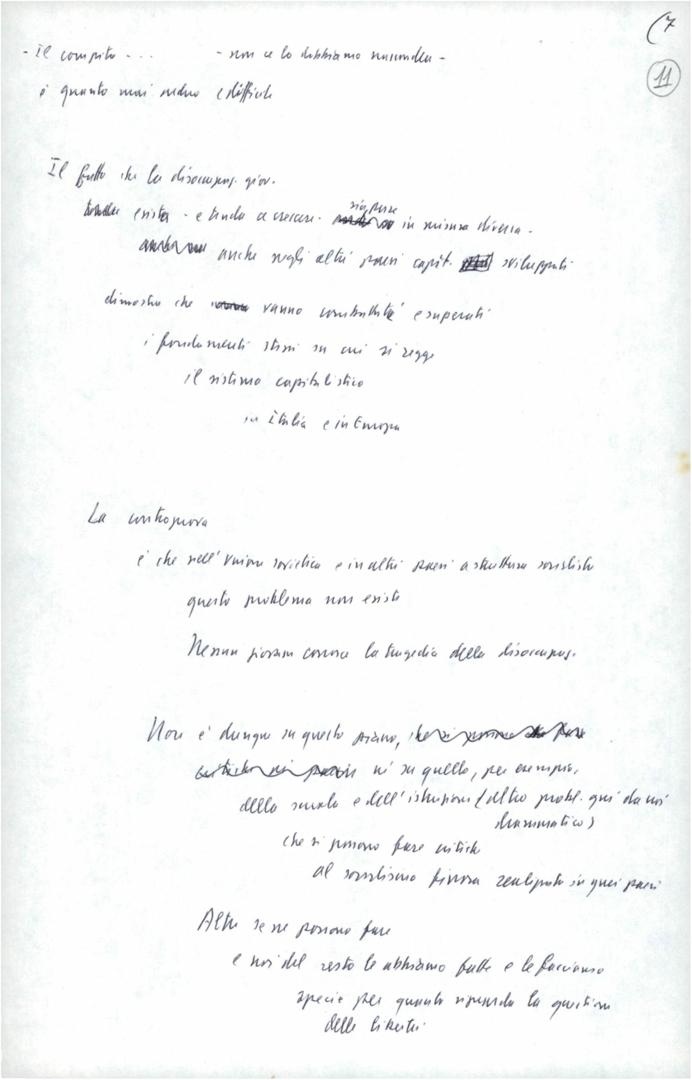 (7
11
- Il compito - . . . - non ce lo dobbiamo nascondere -
è quanto mai arduo e difficile
Il fatto che la disoccupaz. giov.
esista - e tenda a crescere - sia pure in misura diversa -
anche negli altri paesi capit. sviluppati
dimostra che vanno combattuti e superati
i fondamenti stessi su cui si regge
il sistema capitalistico
in Italia e in Europa
La controprova
è che nell'Unione sovietica e in altri paesi a struttura socialista
questo problema non esiste
Nessun giovane conosce la tragedia della disoccupaz.
Non è dunque su questo piano,
né su quello, per esempio,
della scuola e dell'istruzione (altro probl. qui da noi
drammatico)
che si possono fare critiche
al socialismo finora realizzato in quei paesi
Altre se ne possono fare
e noi del resto le abbiamo fatte e le facciamo
specie per quanto riguarda la questione
delle libertà.